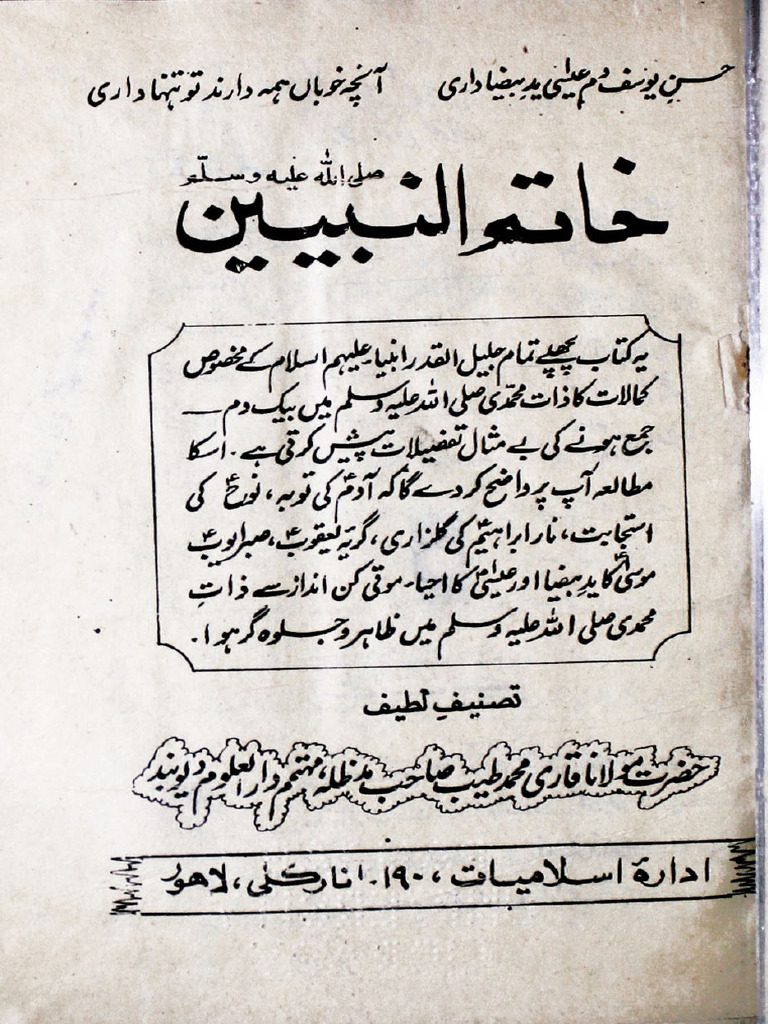 حسنِ یوسف دمِ عیسیٰ یدِ بیضا داری آنچہ خوباں ہمہ دارند تو تنہا داری
صلی اللہ علیہ وسلّم
خاتم النبیین
یہ کتاب پچھلے تمام جلیل القدر انبیاء علیہم السلام کے مخصوص
کمالات کا ذات محمّدی صلی اللہ علیہ وسلم میں بیک دم
جمع ہونے کی بے مثال تفصیلات پیش کرتی ہے۔ اسکا
مطالعہ آپ پر واضح کر دے گا کہ آدمؑ کی توبہ، نوحؑ کی
استجابت، نار ابراہیمؑ کی گلزاری، گریۂ یعقوبؑ، صبر ایوبؑ
موسیٰؑ کا یدِ بیضا اور عیسیٰؑ کا احیاء موتی کن انداز سے ذاتِ
محمدی صلی اللہ علیہ وسلم میں ظاہر و جلوہ گر ہوا۔
تصنیفِ لطیف
حضرت مولانا قاری محمد طیب صاحب مدظلہ، مہتمم دارالعلوم دیوبند
ادارۂ اسلامیات، ۱۹۰۔ انار کلی، لاهور